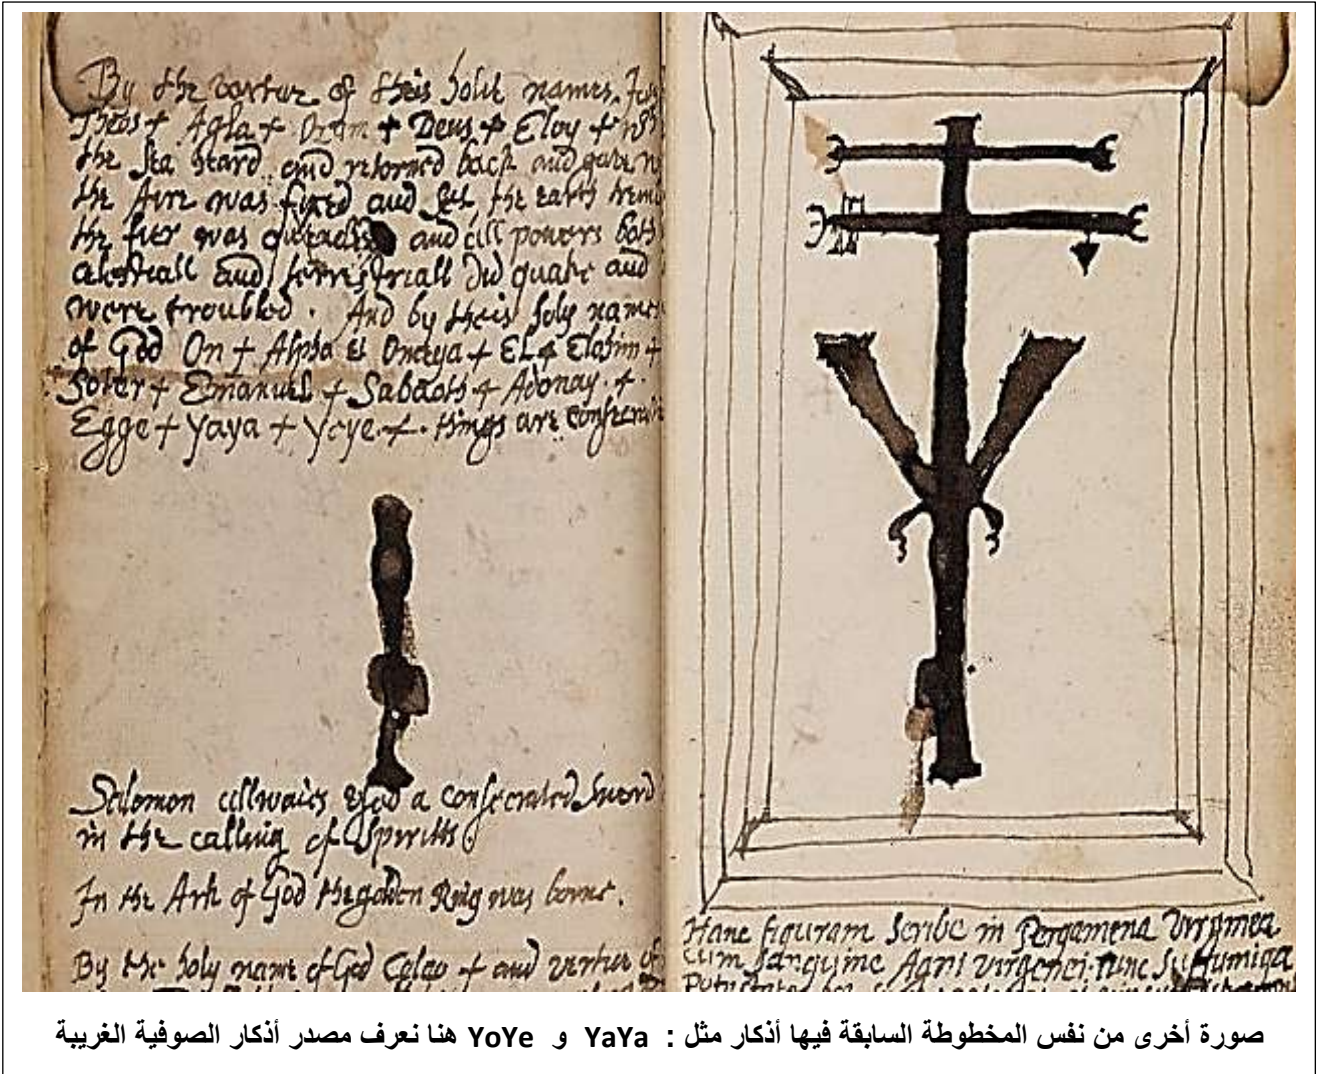 By the vertue of theis holie names. Jes
Theos + Agla + Orum + Deus + Eloy +
the sea heard and retorned back and gave
the Aire was fixed and the earth trem
the fier was and all powers both
celestiall and terrestriall did quake and
were troubled. And by theis holy names
of God On + Alpha et Omega + EL + Elohim +
Soter + Emanuel + Sabaoth + Adonay. +.
Egge + Yaya + Yeye. +. things are consecra
Salomon allwaies used a consecrated sword
in the calling of spiritts
In the Ark of God the golden Ring was borne.
By the holy name of God + and vertue of
Hanc figuram scribe in Pergamena Virginea
cum sanguine Agni virginei tunc suffumiga
صورة أخرى من نفس المخطوطة السابقة فيها أذكار مثل : YaYa و YoYe هنا نعرف مصدر أذكار الصوفية الغريبة